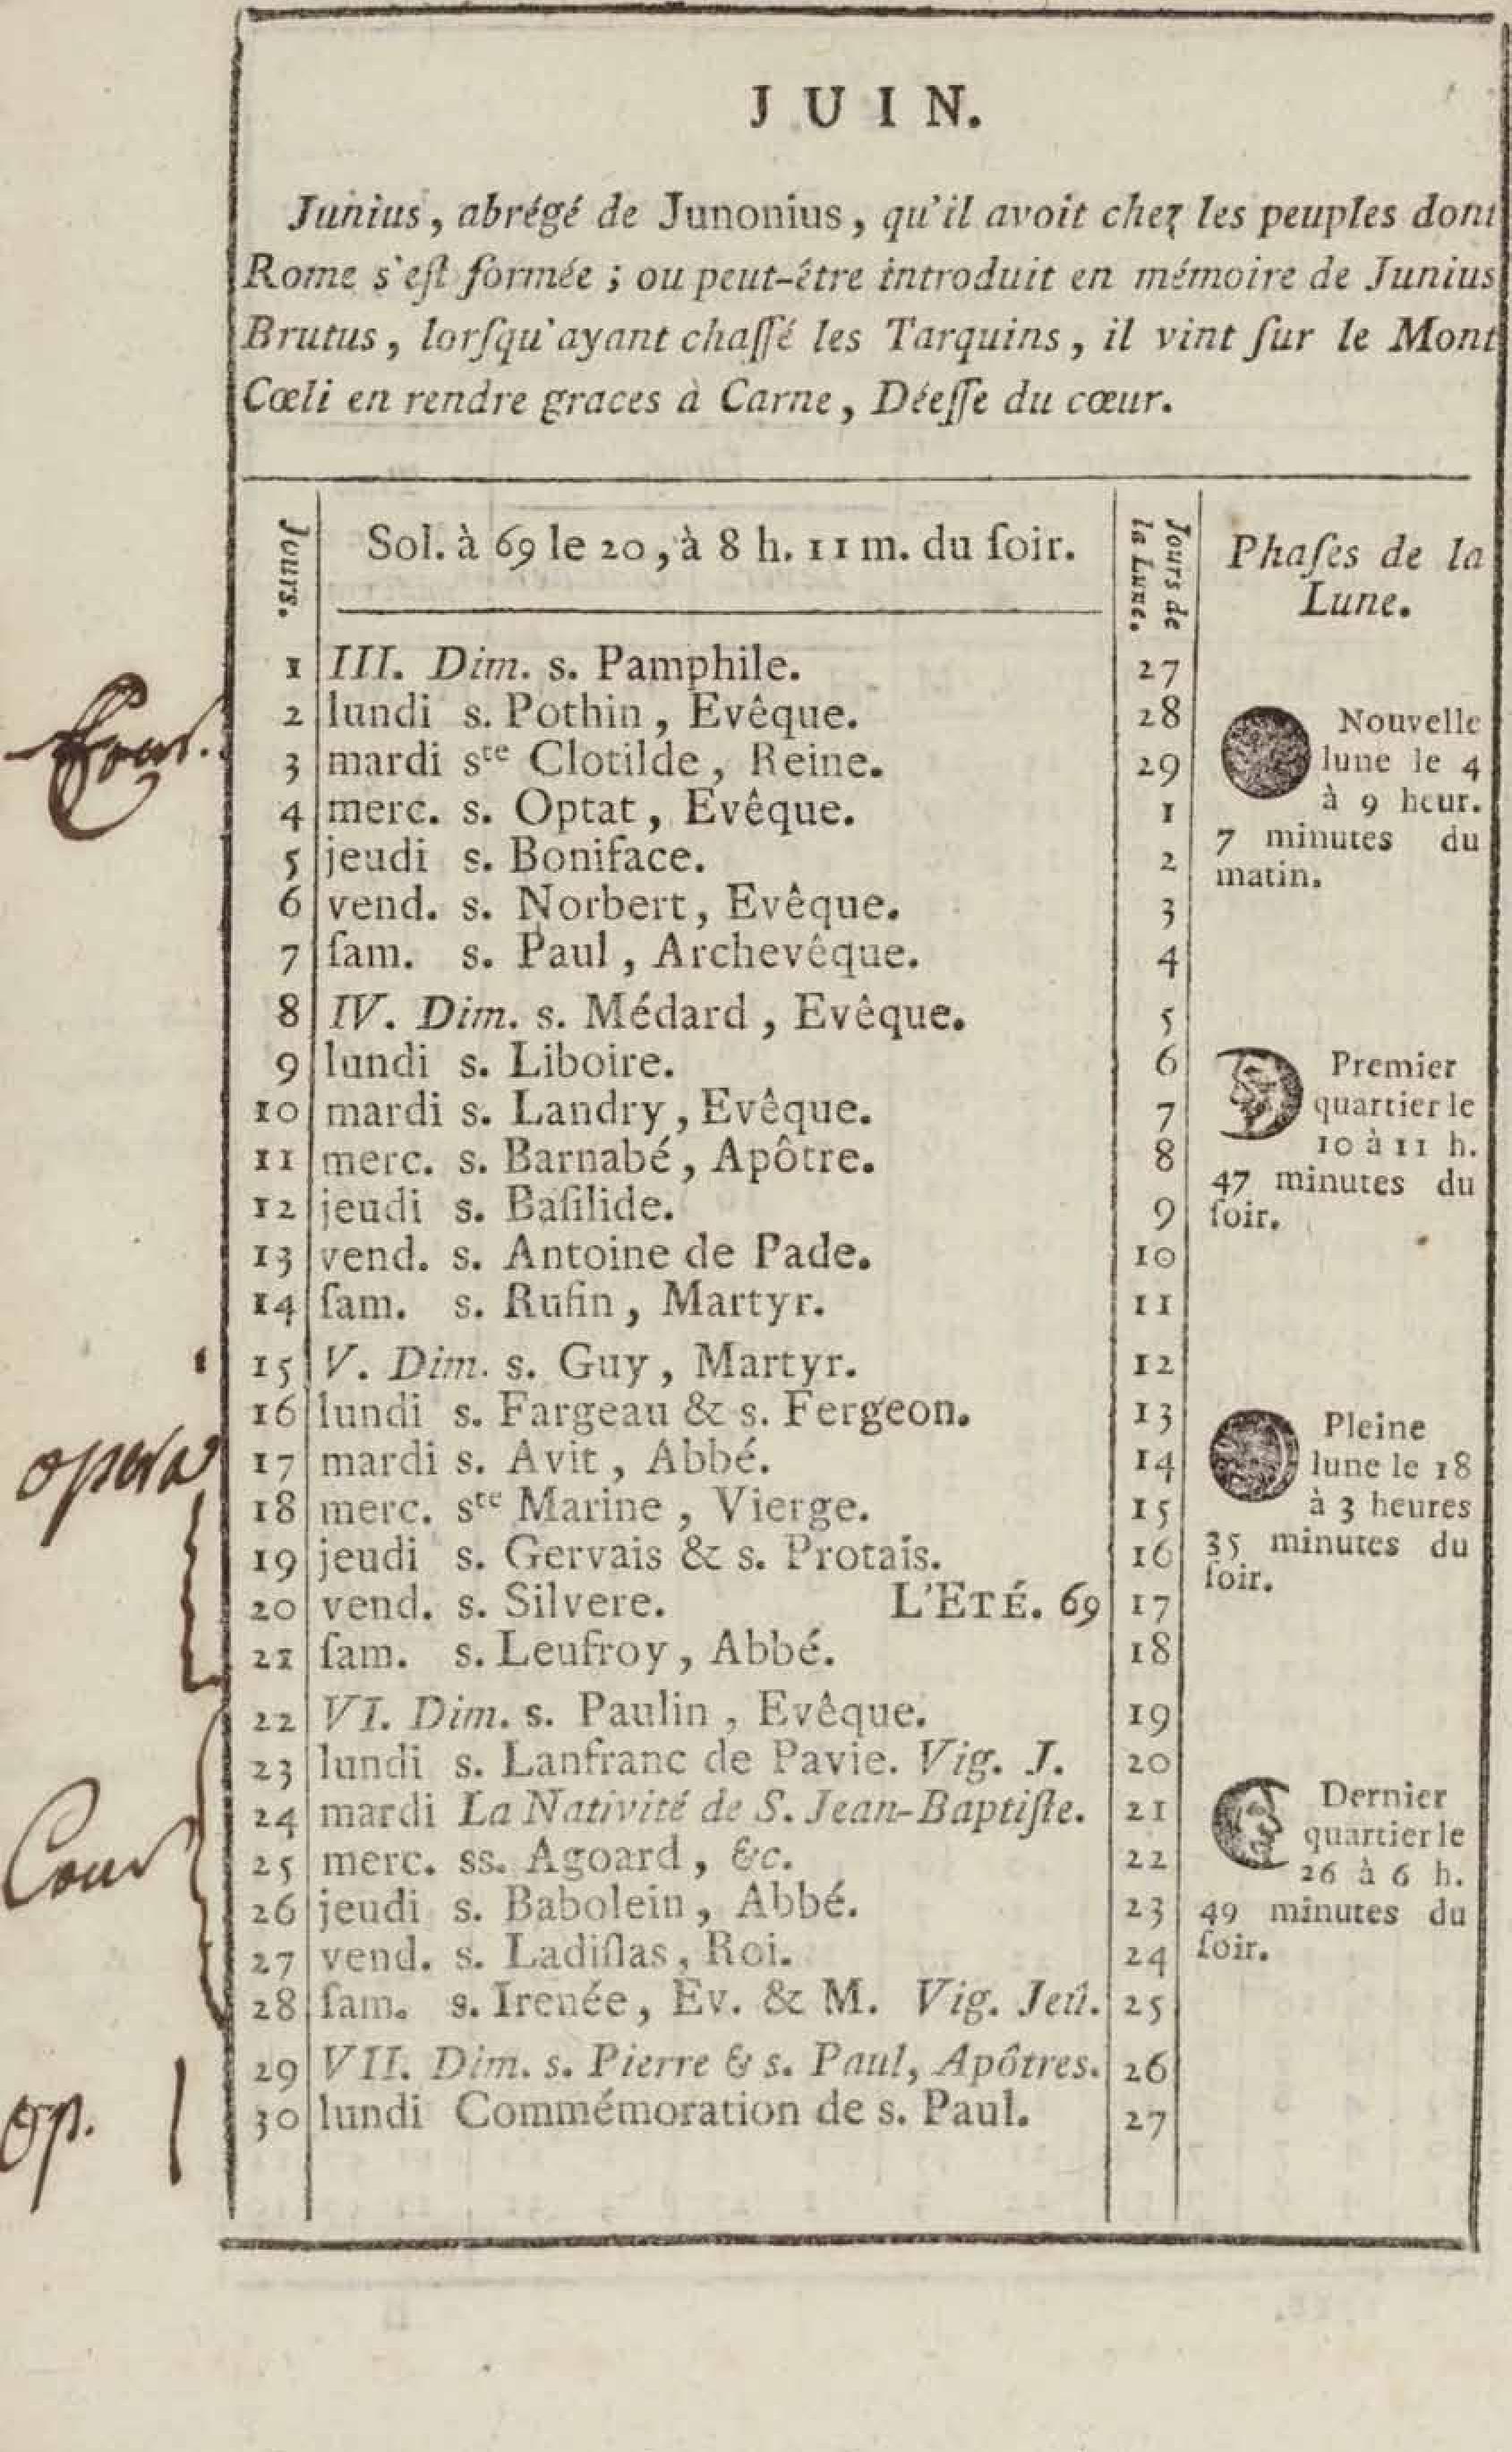 JUIN.
Junius, abrégé de Junonius, qu'il avoit chez les peuples dont
Rome s'eſt formée ; ou peut-être introduit en mémoire de Junius
Brutus, lorſqu'ayant chaſſé les Tarquins, il vint ſur le Mont
Cœli en rendre graces à Carne, Déeſſe du cœur.
Jours.
Sol. à 69 le 20, à 8 h. 11 m. du ſoir.
Jours de
la Lune.
Phaſes de la
Lune.
1 III. Dim. s. Pamphile. 27
2 lundi s. Pothin, Evêque. 28
3 mardi ste Clotilde, Reine. 29
4 merc. s. Optat, Evêque. 1
5 jeudi s. Boniface. 2
6 vend. s. Norbert, Evêque. 3
7 ſam. s. Paul, Archevêque. 4
8 IV. Dim. s. Médard, Evêque. 5
9 lundi s. Liboire. 6
10 mardi s. Landry, Evêque. 7
11 merc. s. Barnabé, Apôtre. 8
12 jeudi s. Baſilide. 9
13 vend. s. Antoine de Pade. 10
14 ſam. s. Rufin, Martyr. 11
15 V. Dim. s. Guy, Martyr. 12
16 lundi s. Fargeau & s. Fergeon. 13
17 mardi s. Avit, Abbé. 14
18 merc. ste Marine, Vierge. 15
19 jeudi s. Gervais & s. Protais. 16
20 vend. s. Silvere. L'ETÉ. 69 17
21 ſam. s. Leufroy, Abbé. 18
22 VI. Dim. s. Paulin, Evêque. 19
23 lundi s. Lanfranc de Pavie. Vig. J. 20
24 mardi La Nativité de S. Jean-Baptiſte. 21
25 merc. ss. Agoard, &c. 22
26 jeudi s. Babolein, Abbé. 23
27 vend. s. Ladiſlas, Roi. 24
28 ſam. s. Irenée, Ev. & M. Vig. Jeû. 25
29 VII. Dim. s. Pierre & s. Paul, Apôtres. 26
30 lundi Commémoration de s. Paul. 27
Nouvelle
lune le 4
à 9 heur.
7 minutes du
matin.
Premier
quartier le
10 à 11 h.
47 minutes du
ſoir.
Pleine
lune le 18
à 3 heures
35 minutes du
ſoir.
Dernier
quartier le
26 à 6 h.
49 minutes du
ſoir.
opera
Cour
op.